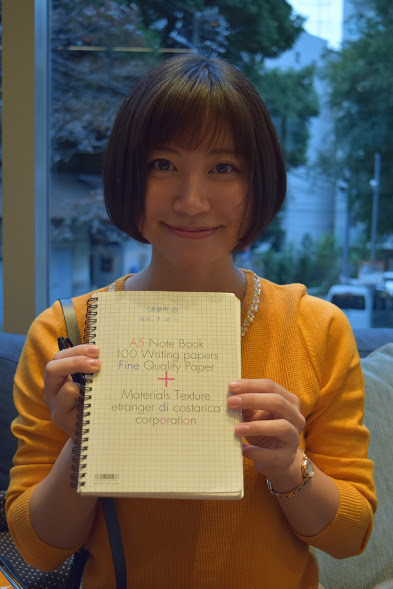 A5 Note Book
100 Writing papers
Fine Quality Paper
+
Materials Texture
etranger di costarica
corporation